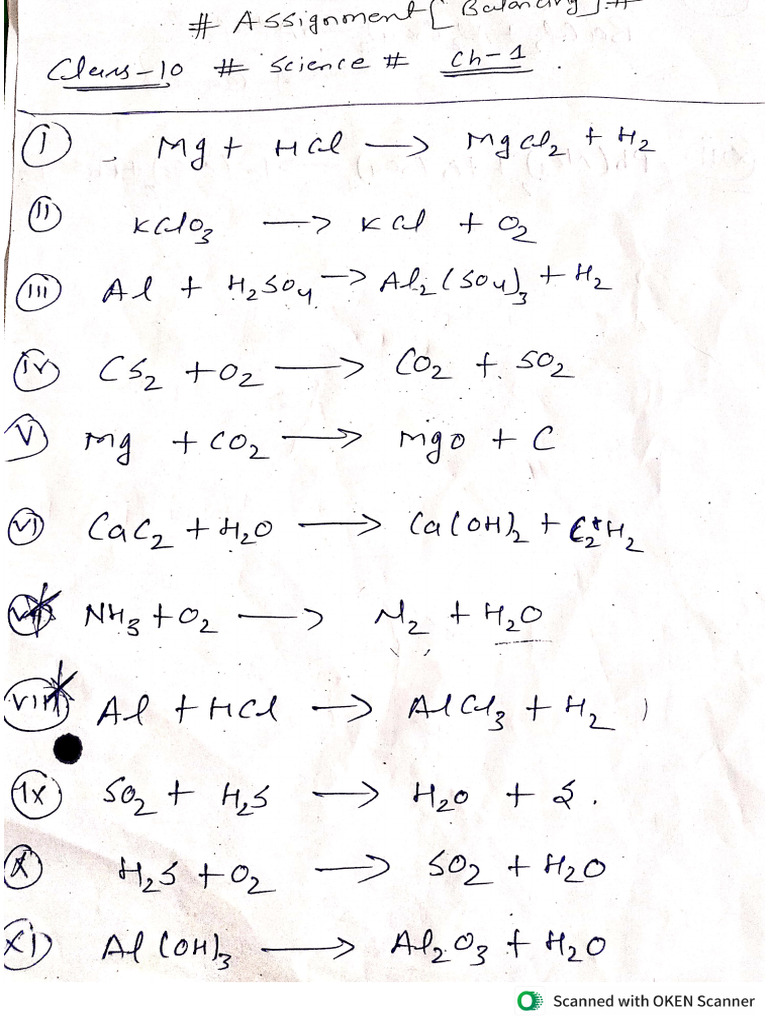 # Assignment [Balancing] #
Class-10 # Science # Ch-1.
(i) Mg + HCl → MgCl₂ + H₂
(ii) KClO₃ → KCl + O₂
(iii) Al + H₂SO₄ → Al₂(SO₄)₃ + H₂
(iv) CS₂ + O₂ → CO₂ + SO₂
(v) Mg + CO₂ → MgO + C
(vi) CaC₂ + H₂O → Ca(OH)₂ + C₂H₂
(vii) NH₃ + O₂ → N₂ + H₂O
(viii) Al + HCl → AlCl₃ + H₂
(ix) SO₂ + H₂S → H₂O + S.
(x) H₂S + O₂ → SO₂ + H₂O
(xi) Al(OH)₃ → Al₂O₃ + H₂O
Scanned with OKEN Scanner